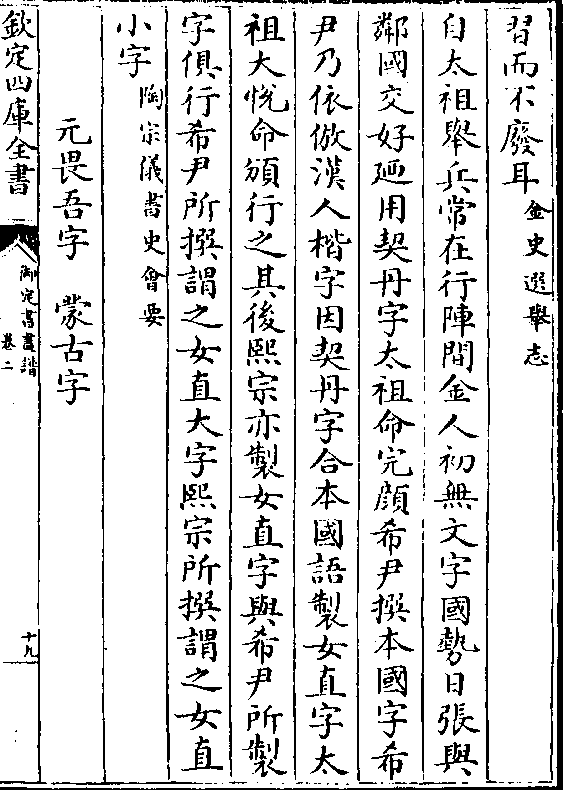 習而不廢耳金史選舉志
自太祖舉兵常在行陣間金人初無文字國勢日張與
鄰國交好廼用契丹字太祖命完顔希尹撰本國字希
尹乃依倣漢人楷字因契丹字合本國語製女直字太
祖大悦命頒行之其後熙宗亦製女直字與希尹所製
字俱行希尹所撰謂之女直大字熙宗所撰謂之女直
小字陶宗儀書史會要
元畏吾字　蒙古字
欽定四庫全書
御定書畫譜
卷二
十九